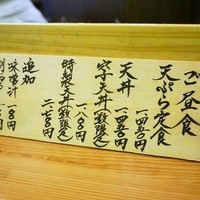 ご昼食
天ぷら定食
一、四五〇円
天丼
一、四五〇円
穴子天丼(数限定)
一、八〇〇円
特製天丼(数限定)
二、七八〇円
追加
味噌汁